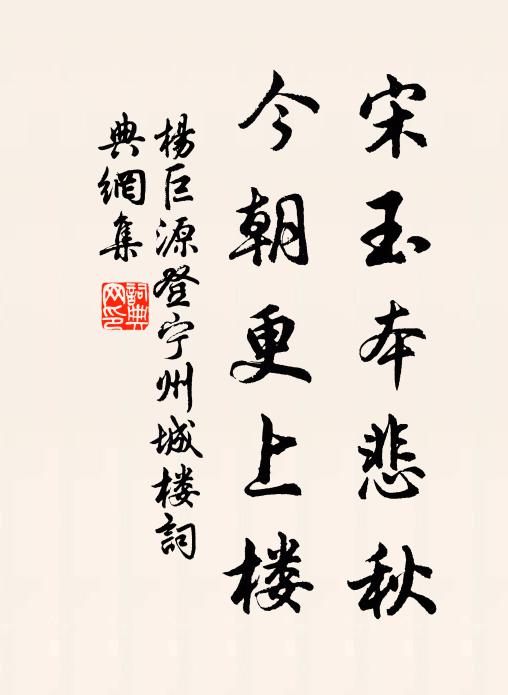 宋玉本悲秋
今朝更上楼
楊巨源登宁州城楼詞
典網集
詞典网印